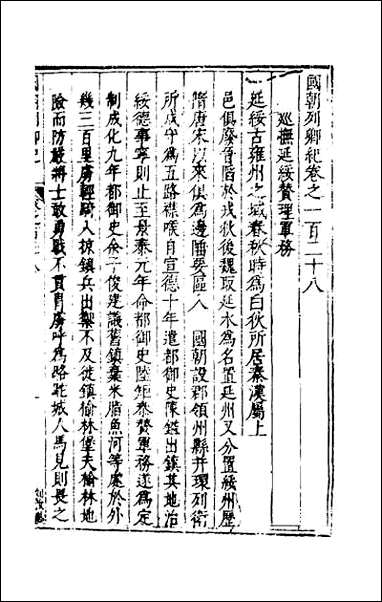 國朝列卿紀卷之一百二十八
廵撫延綏贊理軍務
延綏古雍州之域春秋時為白狄所居秦漢屬上
邑俱廢晉陷於戎狄後魏取延水為名置延州又分置綏州歴
隋唐宋以來俱為邊陲要區入 國朝設郡領州縣并環列衛
所戍守為五路襟喉自宣德十年遣都御史陳鎰出鎮其地治
綏德事寧則止至景泰元年命都御史陸矩泰贊軍務遂為定
制成化九年都御史余子俊建議舊鎮棄米脂魚河等處於外
幾三百里虜輕騎入掠鎮兵出禦不及徙鎮榆林堡夫榆林地
險而防嚴將士敢勇戰不貫胄虜呼為駱駝城人馬見則畏之